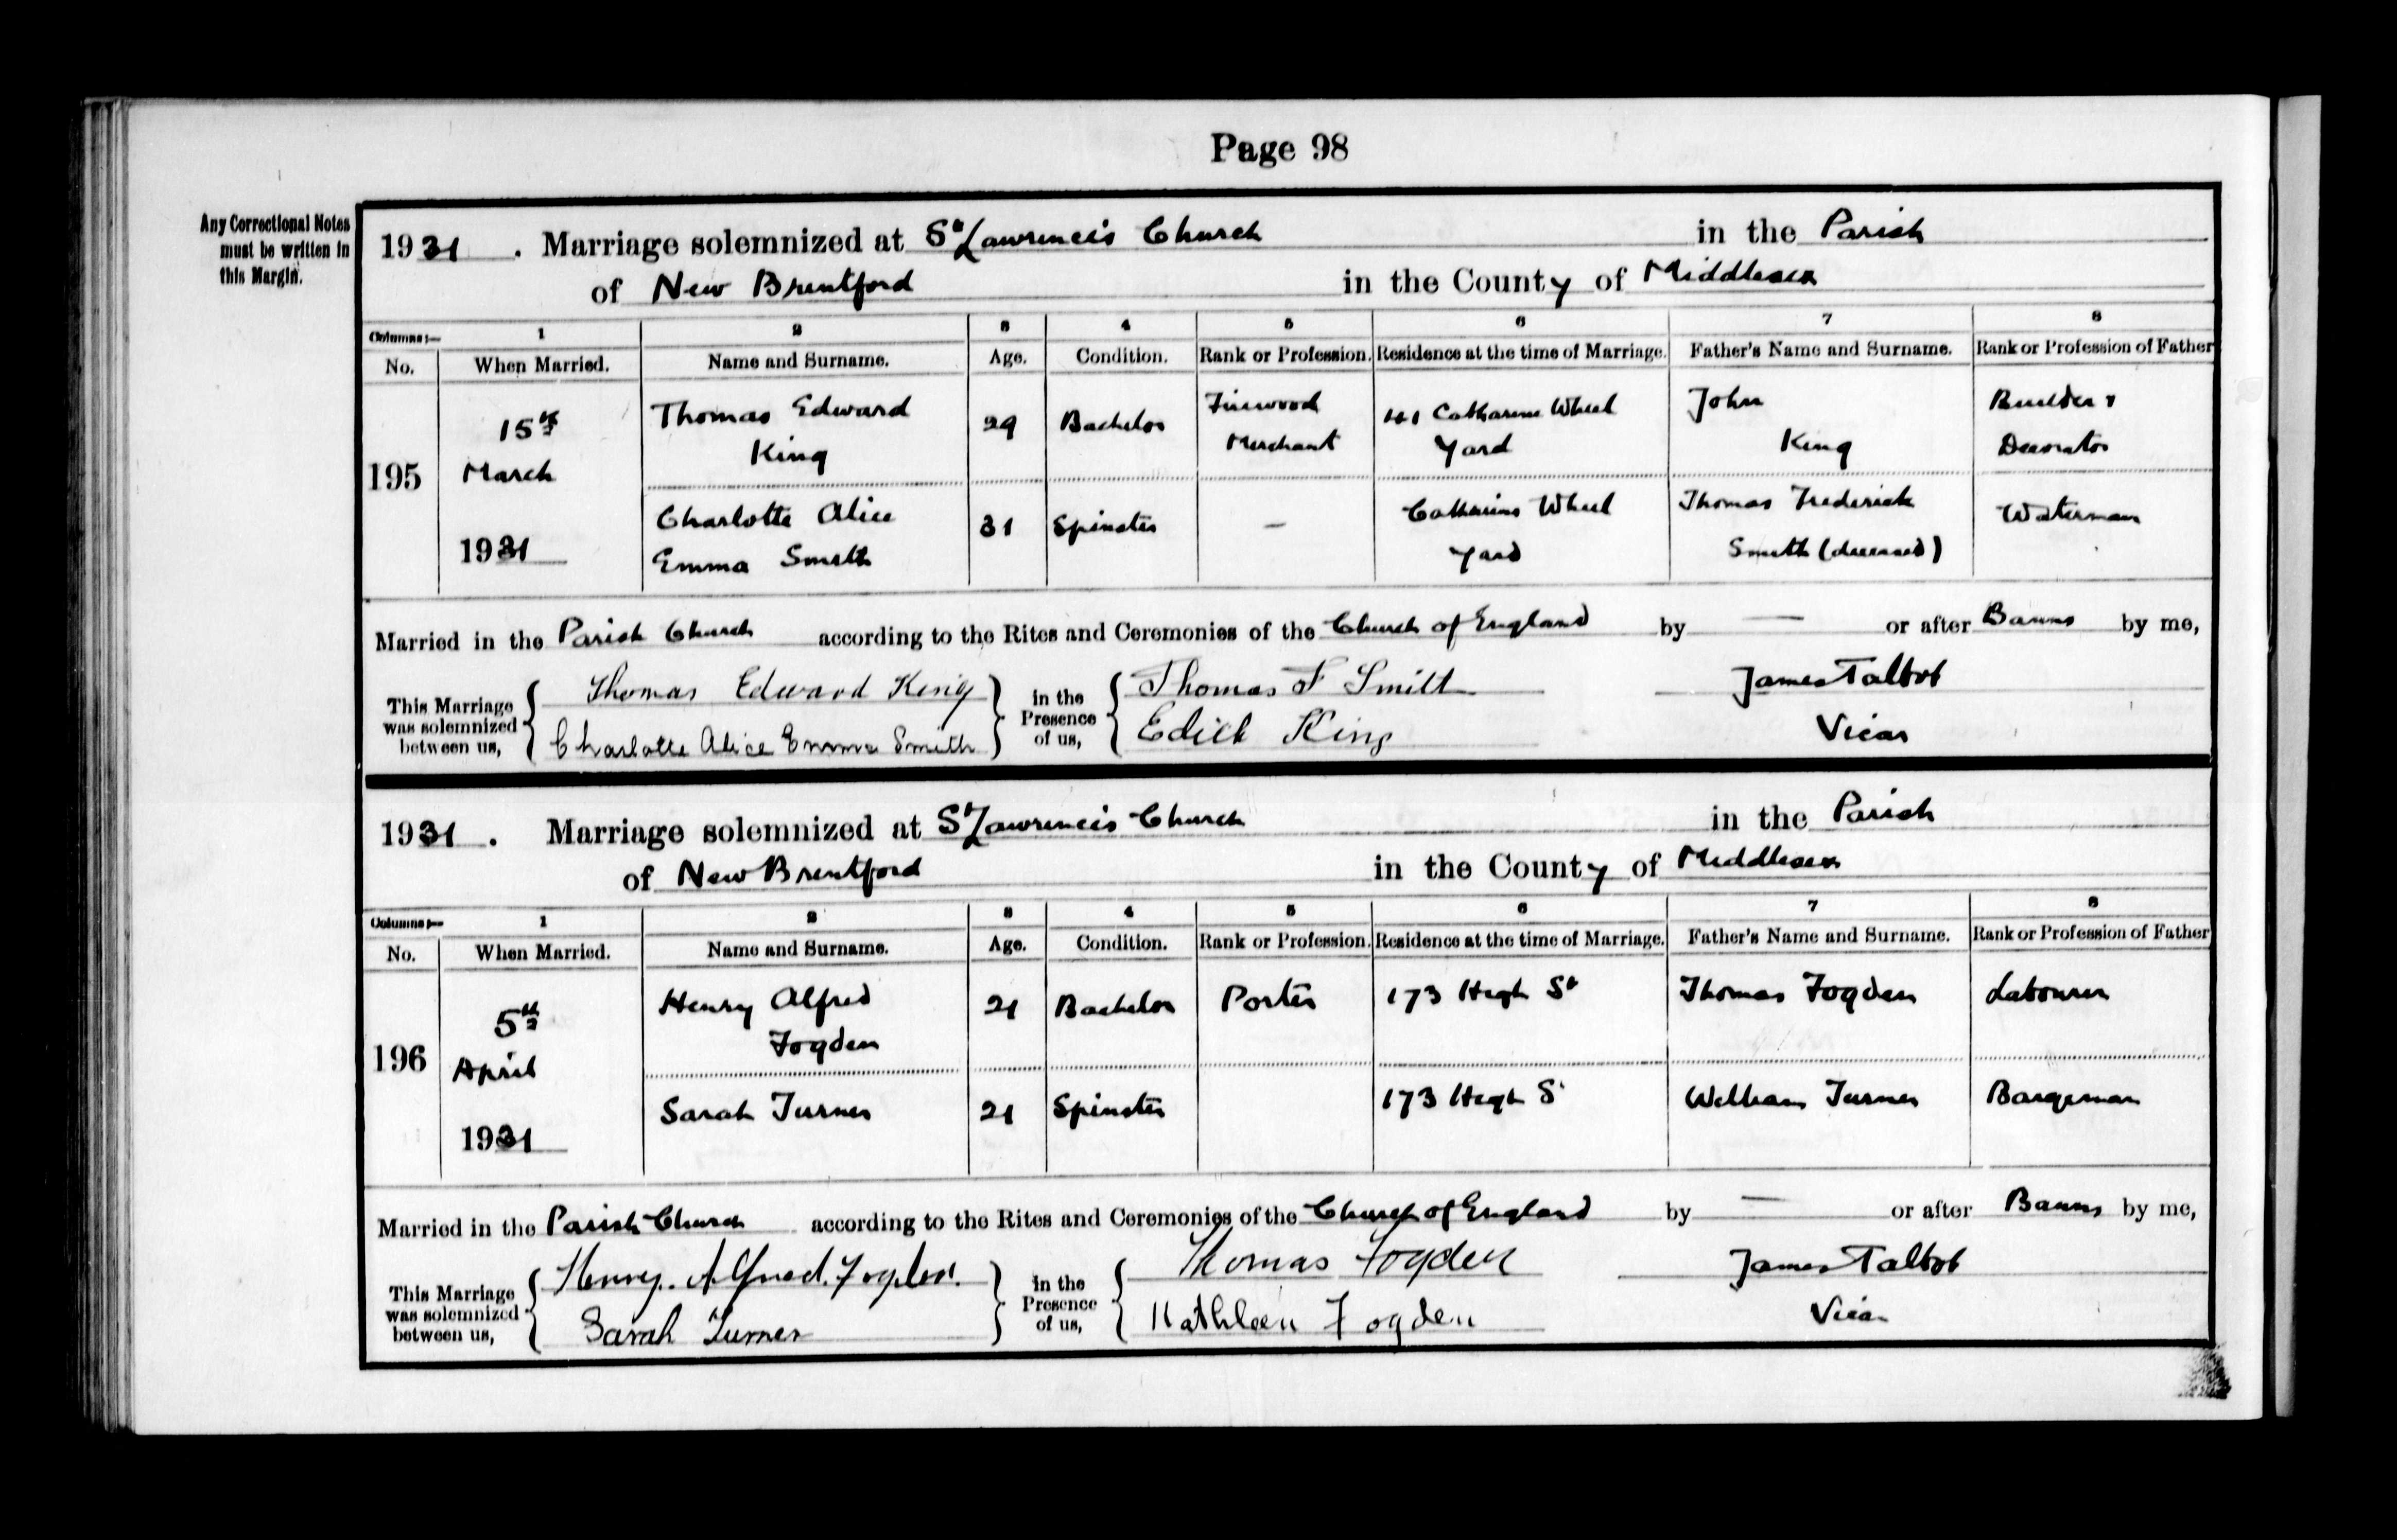 Page 98
Any Correctional Notes
must be written in
this Margin.
1931. Marriage solemnized at St Lawrence's Church in the Parish
of New Brentford in the County of Middlesex
Columns:— 1 2 3 4 5 6 7 8
No. When Married. Name and Surname. Age. Condition. Rank or Profession. Residence at the time of Marriage. Father's Name and Surname. Rank or Profession of Father
195 15th March 1931 Thomas Edward King 29 Bachelor Firewood Merchant 41 Catharine Wheel Yard John King Builder & Decorator
Charlotte Alice Emma Smith 31 Spinster – Catharine Wheel Yard Thomas Frederick Smith (deceased) Waterman
Married in the Parish Church according to the Rites and Ceremonies of the Church of England by — or after Banns by me,
This Marriage was solemnized between us, Thomas Edward King in the Presence of us, Thomas F Smith James Talbot
Charlotte Alice Emma Smith Edith King Vicar
1931. Marriage solemnized at St Lawrence's Church in the Parish
of New Brentford in the County of Middlesex
Columns:— 1 2 3 4 5 6 7 8
No. When Married. Name and Surname. Age. Condition. Rank or Profession. Residence at the time of Marriage. Father's Name and Surname. Rank or Profession of Father
196 5th April 1931 Henry Alfred Fogden 21 Bachelor Porter 173 High St Thomas Fogden Labourer
Sarah Turner 21 Spinster 173 High St William Turner Bargeman
Married in the Parish Church according to the Rites and Ceremonies of the Church of England by — or after Banns by me,
This Marriage was solemnized between us, Henry. Alfred. Fogden. in the Presence of us, Thomas Fogden James Talbot
Sarah Turner Kathleen Fogden Vicar